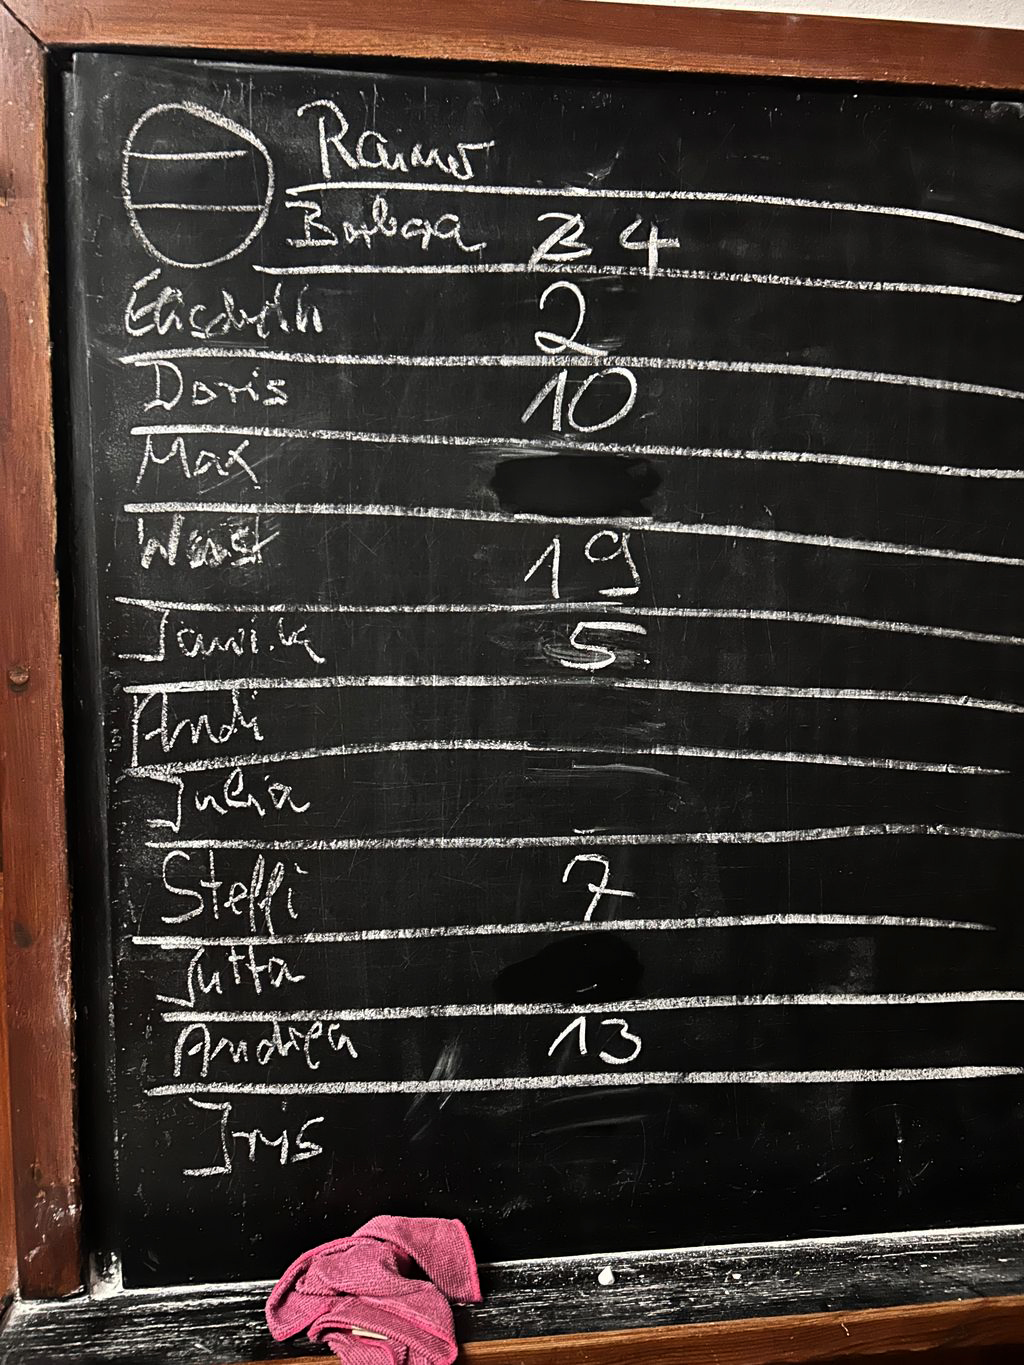 Rainer
Barbara 4
Elisabeth 2
Doris 10
Max
19
5
Andi
Julia
Steffi 7
Jutta
Andrea 13
Iris